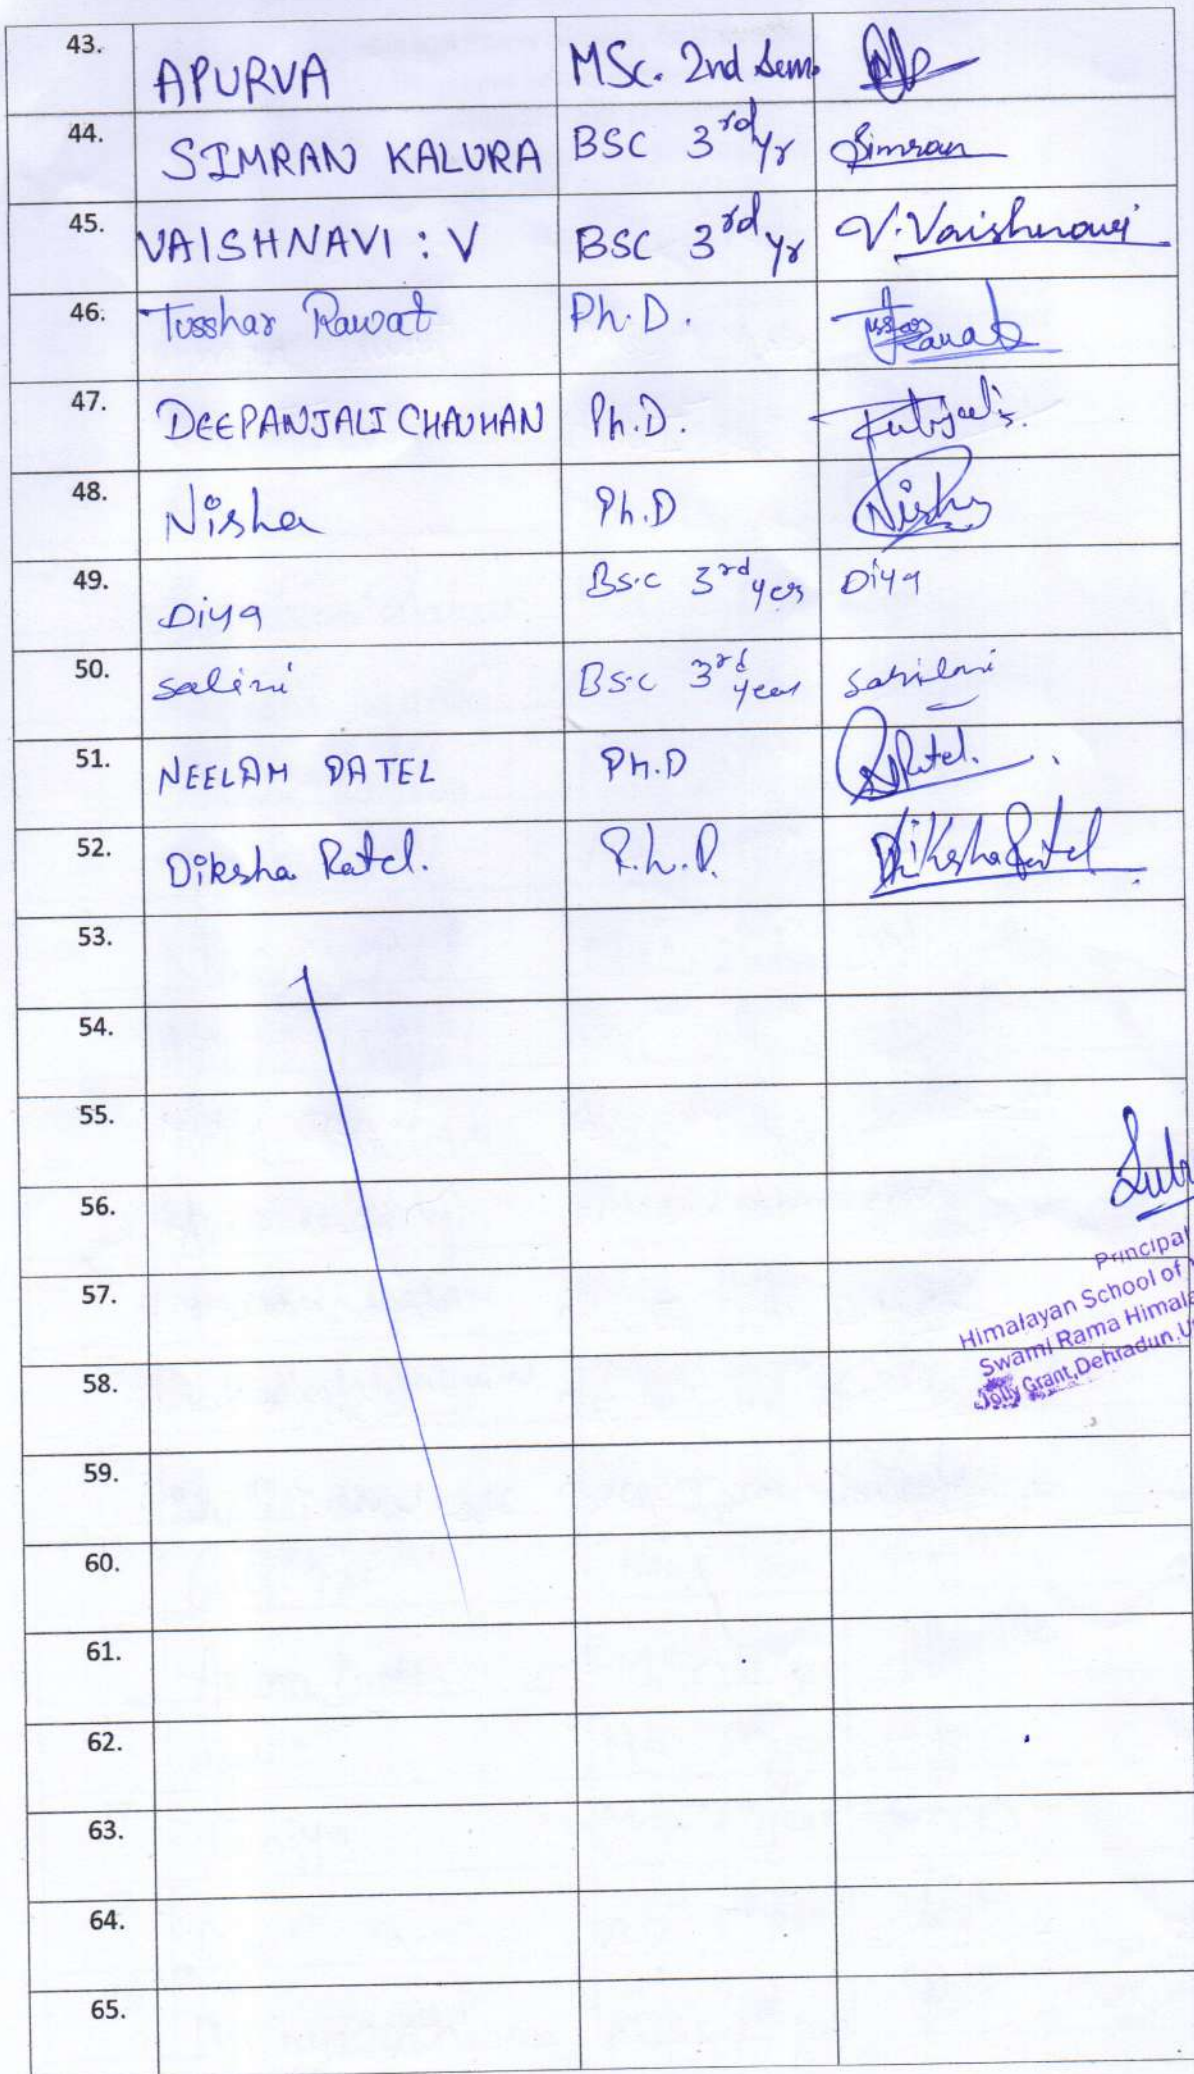 43. APURVA MSc. 2nd Sem.
44. SIMRAN KALURA BSC 3rd yr Simran
45. VAISHNAVI : V BSC 3rd yr V. Vaishnavi
46. Tusshar Rawat Ph.D. Rawat
47. DEEPANJALI CHAUHAN Ph.D.
48. Nisha Ph.D Nisha
49. Diya Bsc 3rd year Diya
50. salini Bsc 3rd year
51. NEELAM PATEL Ph.D Patel.
52. Diksha Patel. P.h.D. Diksha Patel
53.
54.
55.
56.
Principal
57.
Himalayan School of
Swami Rama Himala
58.
Jolly Grant, Dehradun, U
59.
60.
61.
62.
63.
64.
65.